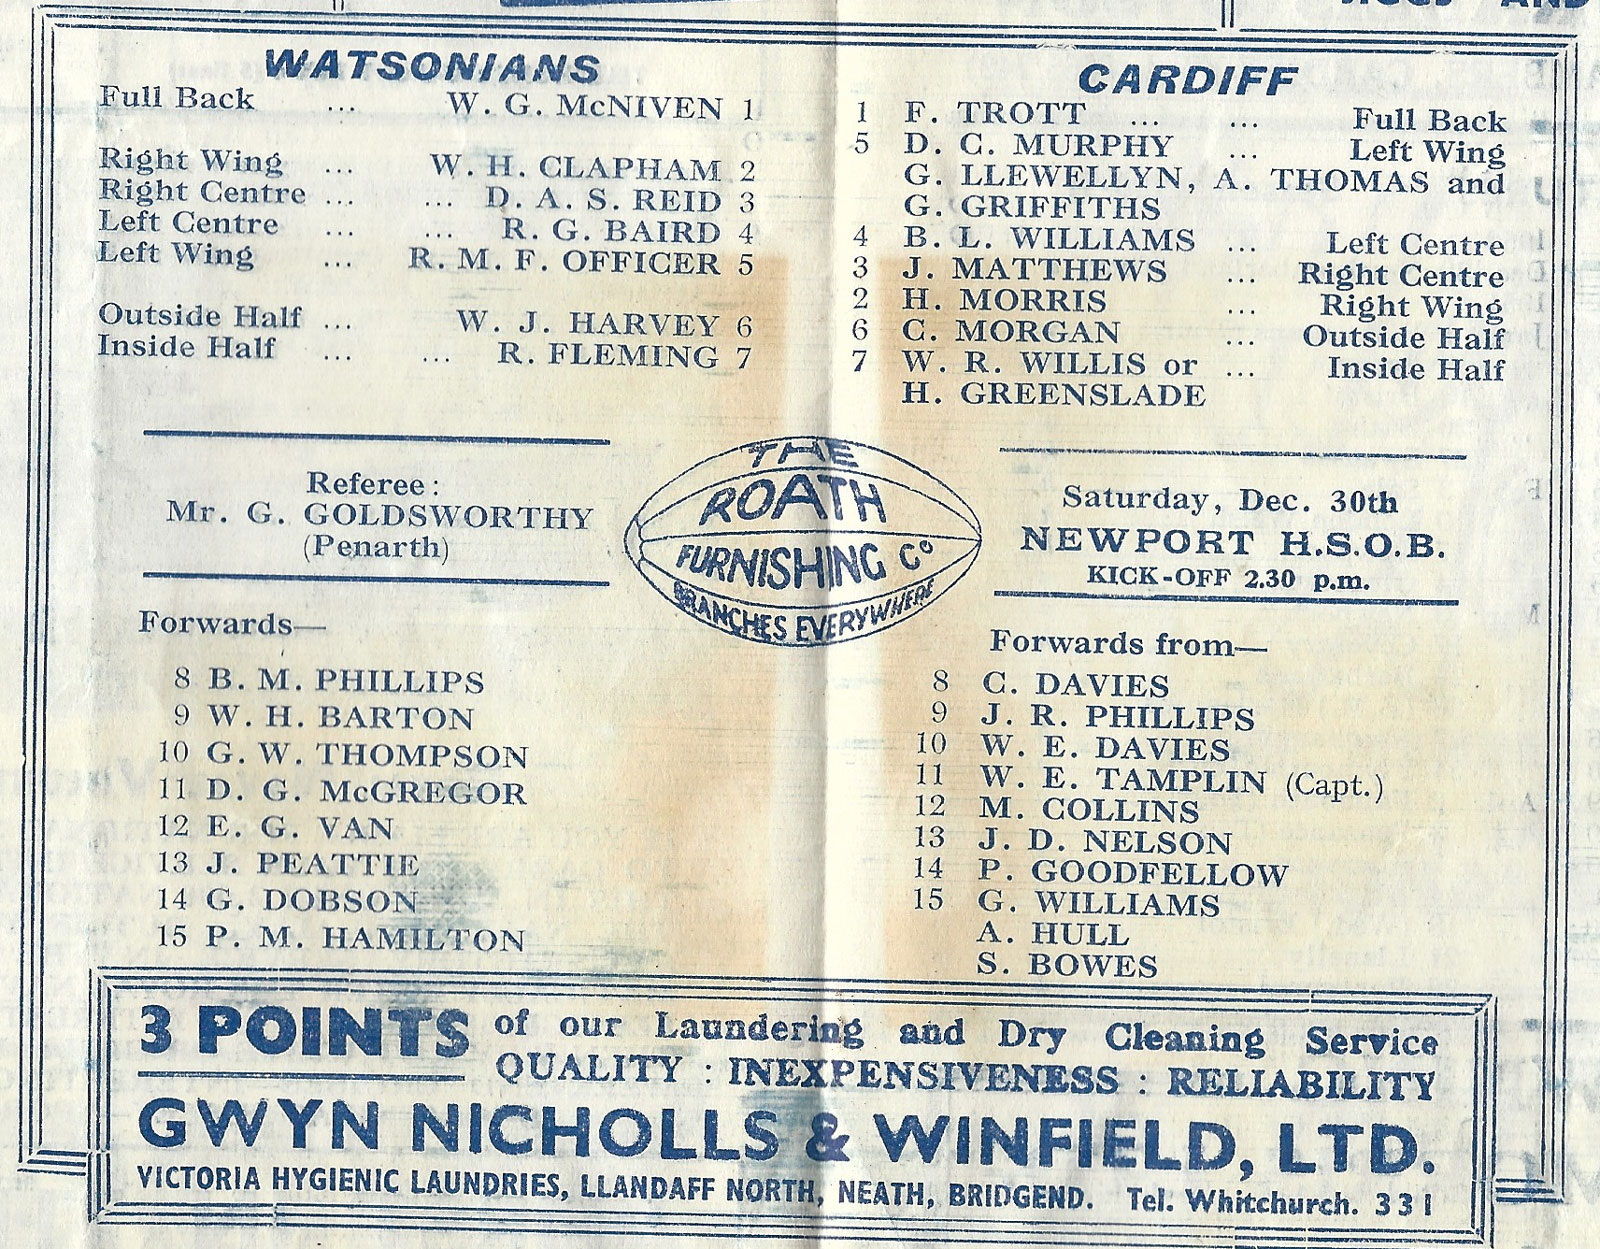 WATSONIANS
Full Back ... W. G. McNIVEN 1
Right Wing ... W. H. CLAPHAM 2
Right Centre ... ... D. A. S. REID 3
Left Centre ... ... R. G. BAIRD 4
Left Wing ... R. M. F. OFFICER 5
Outside Half ... W. J. HARVEY 6
Inside Half ... ... R. FLEMING 7
CARDIFF
1 F. TROTT ... ... Full Back
5 D. C. MURPHY ... Left Wing
G. LLEWELLYN, A. THOMAS and
G. GRIFFITHS
4 B. L. WILLIAMS ... Left Centre
3 J. MATTHEWS ... Right Centre
2 H. MORRIS ... Right Wing
6 C. MORGAN ... Outside Half
7 W. R. WILLIS or ... Inside Half
H. GREENSLADE
Referee:
Mr. G. GOLDSWORTHY
(Penarth)
THE
ROATH
FURNISHING Co
BRANCHES EVERYWHERE
Saturday, Dec. 30th
NEWPORT H.S.O.B.
KICK-OFF 2.30 p.m.
Forwards—
8 B. M. PHILLIPS
9 W. H. BARTON
10 G. W. THOMPSON
11 D. G. McGREGOR
12 E. G. VAN
13 J. PEATTIE
14 G. DOBSON
15 P. M. HAMILTON
Forwards from—
8 C. DAVIES
9 J. R. PHILLIPS
10 W. E. DAVIES
11 W. E. TAMPLIN (Capt.)
12 M. COLLINS
13 J. D. NELSON
14 P. GOODFELLOW
15 G. WILLIAMS
A. HULL
S. BOWES
3 POINTS of our Laundering and Dry Cleaning Service
QUALITY : INEXPENSIVENESS : RELIABILITY
GWYN NICHOLLS & WINFIELD, LTD.
VICTORIA HYGIENIC LAUNDRIES, LLANDAFF NORTH, NEATH, BRIDGEND. Tel. Whitchurch. 331